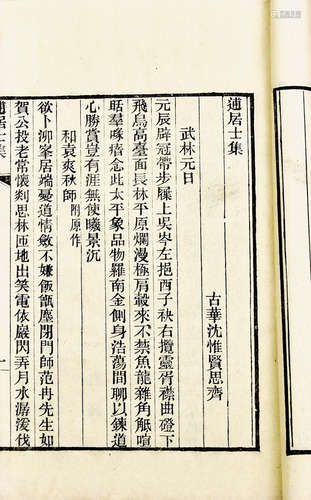 逋居士集
古華沈惟賢思齊
武林元日
元辰辟冠帶步屧上吳岑左挹西子袂右攬靈胥襟曲磴下
飛鳥高臺面長林平原爛漫極肩轂來不禁魚龍雜角觝喧
眊羣咻瘖念此太平象品物羅南金側身浩蕩間聊以鍊道
心勝賞豈有涯無使曦景沉
和袁爽秋師附原作
欲卜泖峯居端憂道情斂不嫌飯甑塵閉門師范冉先生如
賀公投老常懷剡思林匝地出笑電依巖閃弄月水潺湲伐
逋居士集
一